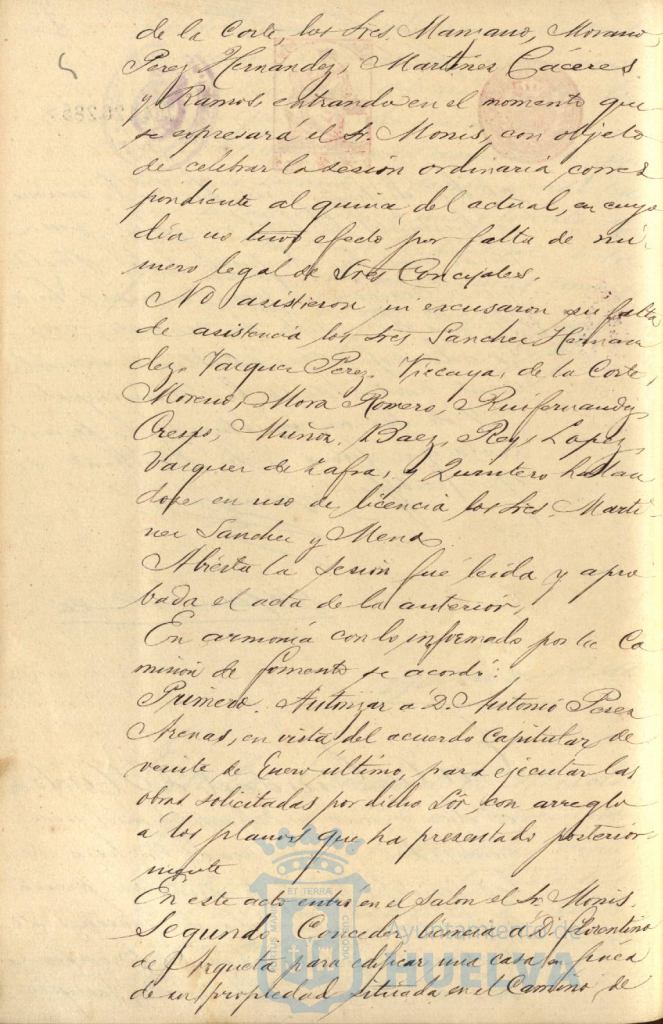 de la Corte, los Sres. Manzano, Morano,
Perez Hernandez, Martinez Cáceres
y Ramos, entrando en el momento que
se expresará el Sr. Monis, con objeto
de celebrar la sesión ordinaria, corres
pondiente al quince del actual, en cuyo
dia no tuvo efecto por falta de nú
mero legal de Sres Concejales.
No asistieron ni excusaron su falta
de asistencia los Sres Sanchez Hernan
dez, Vazquez Perez, Vizcaya, de la Corte,
Moreno, Mora Romero, Ruifernandez,
Crespo, Muñoz, Baez, Rey, Lopez,
Vazquez de Zafra, y Quintero hallan
dose en uso de licencia los Sres. Marti
nez Sanchez y Mena.
Abierta la Sesión fué leida y apro
bada el acta de la anterior.
En armonía con lo informado por la Co
misión de Fomento se acordó:
Primero. Autorizar a D. Antonio Perez
Arenas, en vista del acuerdo Capitular de
veinte de Enero último, para ejecutar las
obras solicitadas por dicho Sór, con arreglo
á los planos que ha presentado posterior
mente
En este acto entró en el Salon el Sr. Monis.
Segundo Conceder licencia a D. Florentino
de Arqueta para edificar una casa en finca
de su propiedad situada en el Camino de
Ayuntamiento de
HUELVA